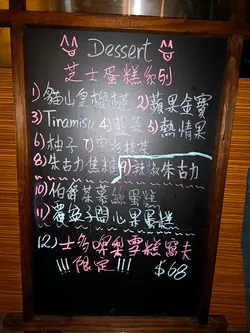 Dessert
芝士蛋糕系列
1) 貓山皇榴槤 2) 蘋果金寶
3) Tiramisu 4) 藍莓 5) 熱情果
6) 柚子 7) 宇治抹茶
8) 朱古力焦糖 9) 辣椒朱古力
10) 伯爵茶蕾絲蛋糕
11) 覆盆子開心果蛋糕
12) 士多啤梨雪糕窩夫
!!! 限定!!! $68